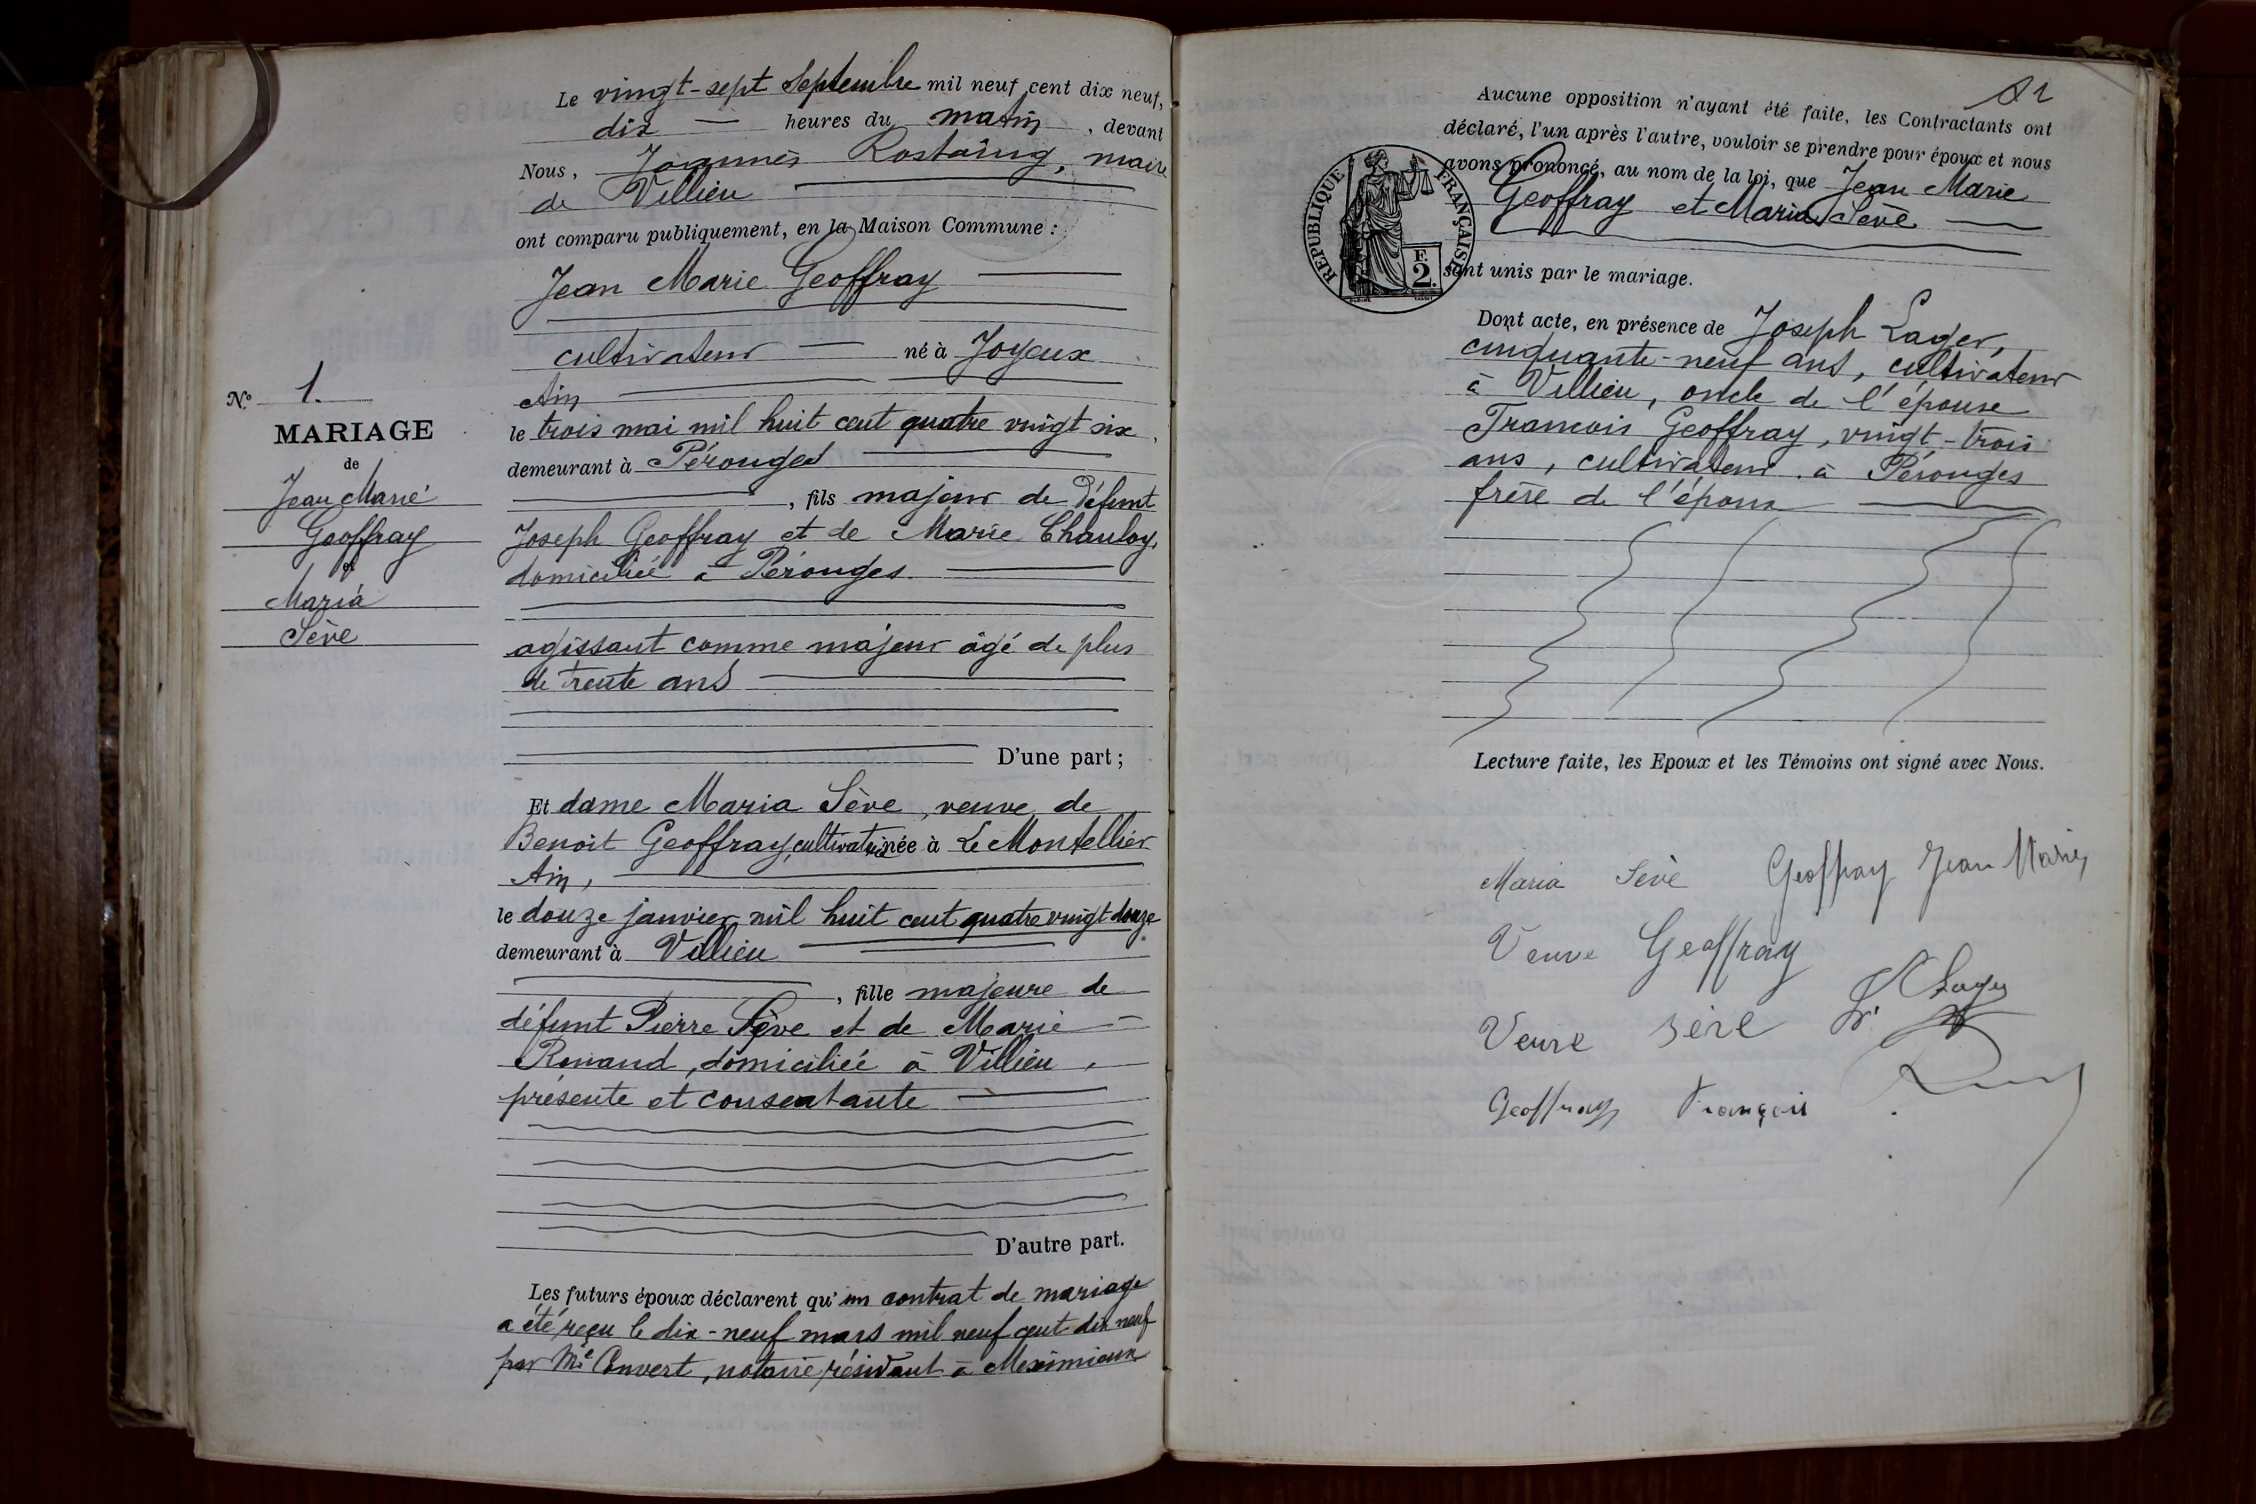 Le vingt-sept Septembre mil neuf cent dix neuf,
dix heures du matin, devant
Nous, Joannès Rostaing, maire
de Villieu
ont comparu publiquement, en la Maison Commune :
Jean Marie Geoffray
cultivateur né à Joyeux
Ain
le trois mai mil huit cent quatre vingt six,
demeurant à Pérouges
, fils majeur de défunt
Joseph Geoffray et de Marie Chanloy,
domiciliée à Pérouges
agissant comme majeur âgé de plus
de trente ans
D'une part ;
Et dame Maria Sève, veuve de
Benoit Geoffray, cultivatrice née à Le Montellier
Ain,
le douze janvier mil huit cent quatre vingt douze
demeurant à Villieu
, fille majeure de
défunt Pierre Sève et de Marie
Renand, domiciliée à Villieu,
présente et consentante
D'autre part.
Les futurs époux déclarent qu'un contrat de mariage
a été reçu le dix-neuf mars mil neuf cent dix neuf
par Me Convert, notaire résidant à Meximieux
No 1.
MARIAGE
de
Jean Marie
Geoffray
et
Maria
Sève
Aucune opposition n'ayant été faite, les Contractants ont
déclaré, l'un après l'autre, vouloir se prendre pour époux et nous
avons prononcé, au nom de la loi, que Jean Marie
Geoffray et Maria Sève
sont unis par le mariage.
RÉPUBLIQUE FRANÇAISE
F.
2.
Dont acte, en présence de Joseph Lager,
cinquante-neuf ans, cultivateur
à Villieu, oncle de l'épouse
Francois Geoffray, vingt-trois
ans, cultivateur à Pérouges
frère de l'époux
Lecture faite, les Epoux et les Témoins ont signé avec Nous.
Maria Sève Geoffray Jean Marie
Veuve Geoffray
Veuve Sève
Geoffray François